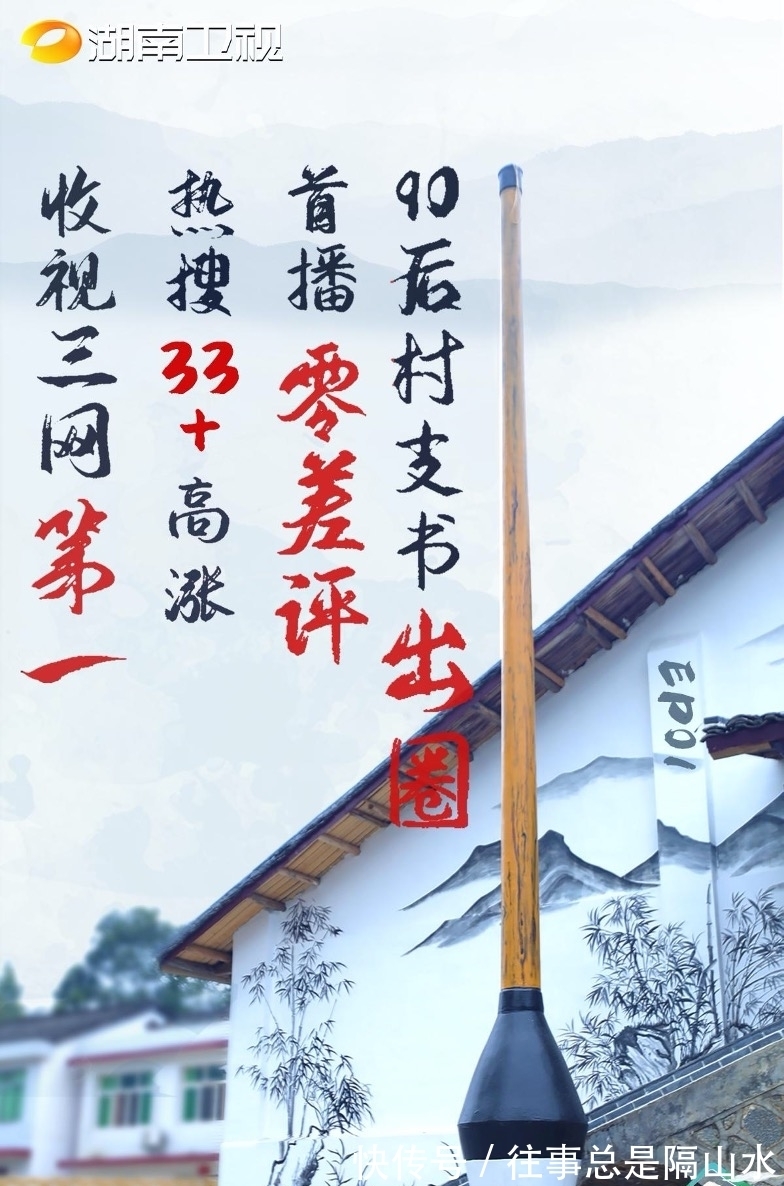 湖南卫视
90后村支书出圈
首播零差评
热搜33+高涨
收视三网第一
EP01
快传号 / 往事总是隔山水